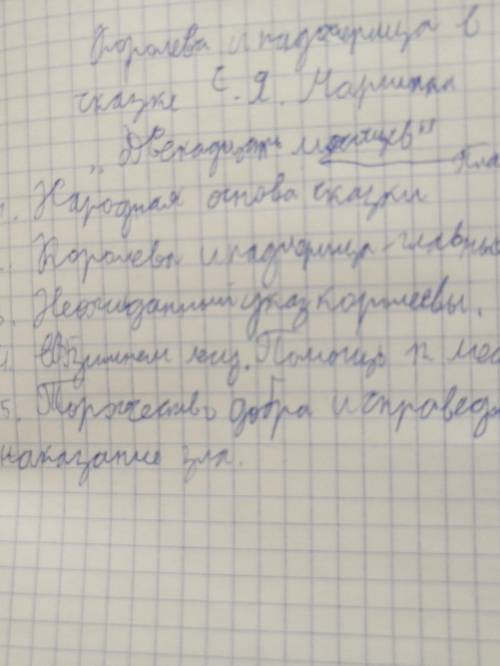 Королева и падчерица в
сказке С. Я. Маршака
"Двенадцать месяцев"
Пла
1. Народная основа сказки
Королева и падчерица - главные
3. Неожиданный указ королевы.
4. В зимнем лесу. Помощь 12 мес
5. Торжество добра и справед
наказание зла.